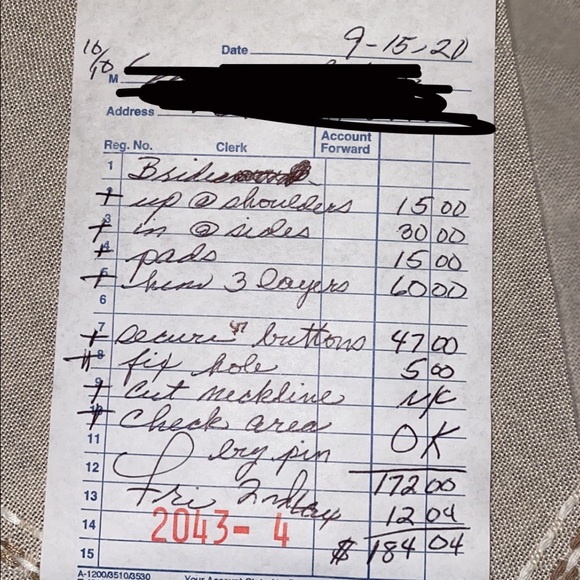 10/10
Date 9-15-20
M
Address
Reg. No. Clerk Account Forward
1 Brides
2 up @ shoulders 15 00
3 in @ sides 30 00
4 pads 15 00
5 hem 3 layers 60 00
6
7 secure 47 buttons 47 00
8 fix hole 5 00
9 cut neckline N/C
10 check area OK
11 by pin
12 172 00
13 Fri 12 04
14 2043-4 $ 184 04
15
A-1200/3510/3530
Your Account